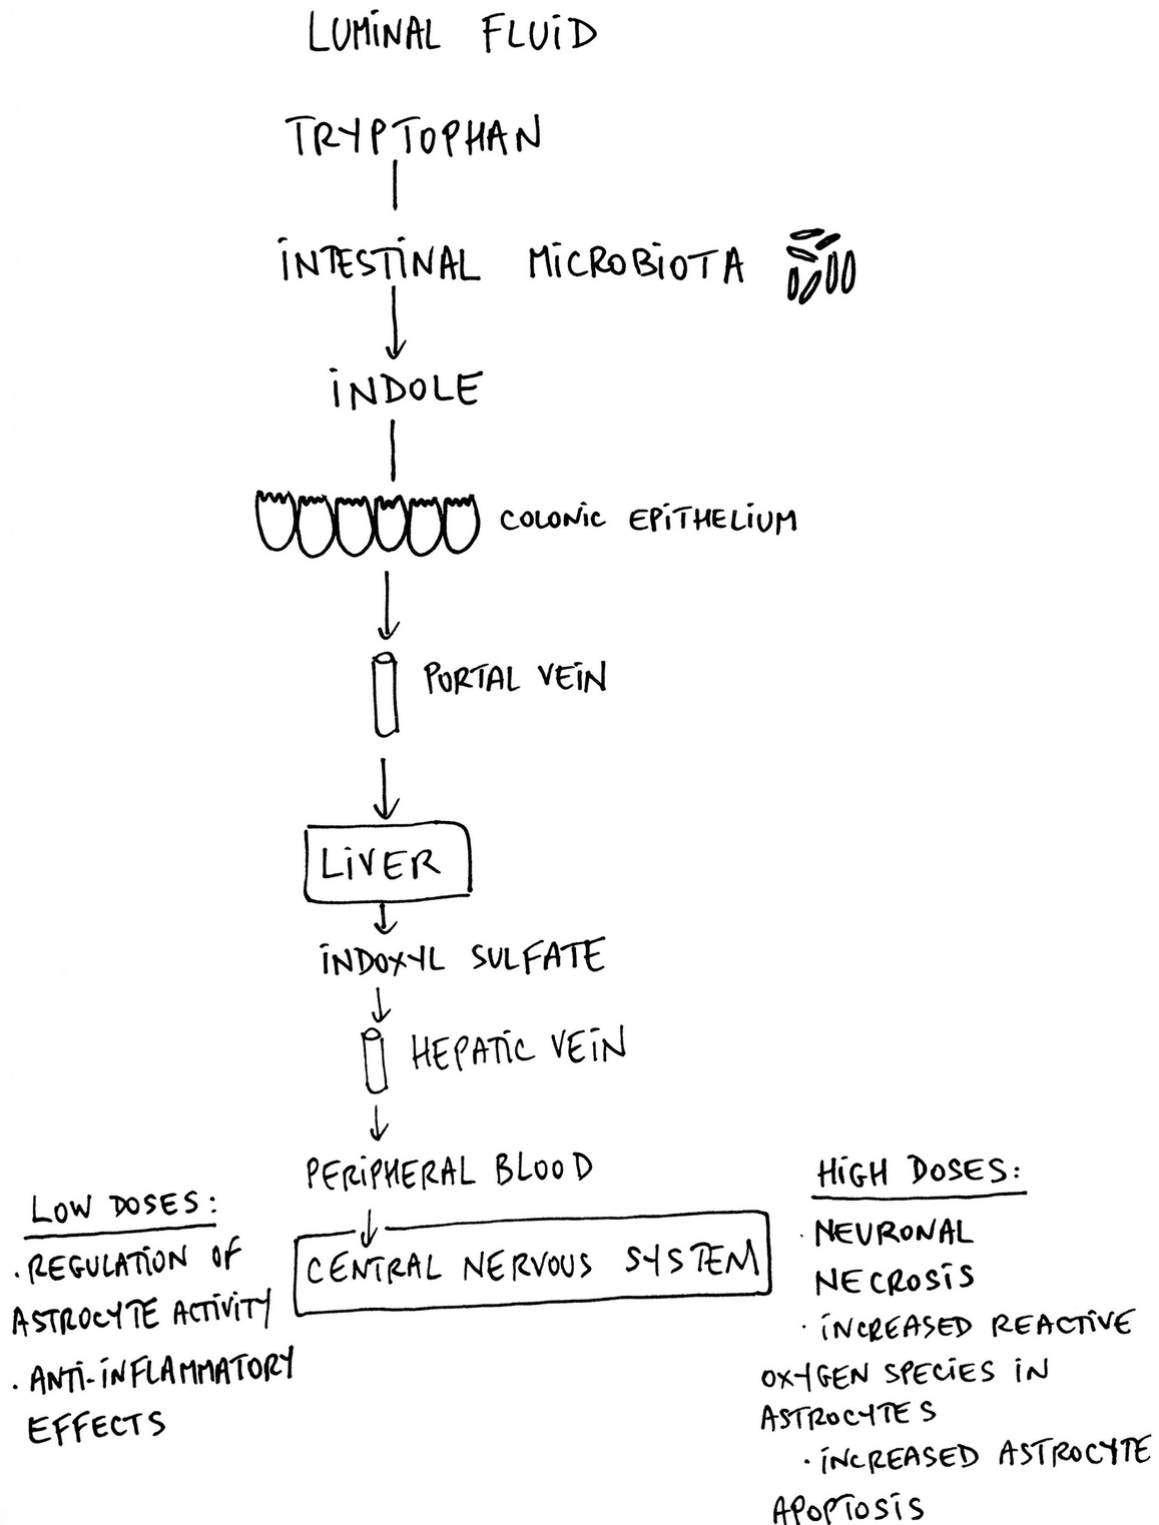 LUMiNAL FLUiD
TRYPTOPHAN
iNTESTiNAL MiCROBiOTA
iNDOLE
COLONiC EPiTHELiUM
PORTAL VEiN
LiVER
iNDOXYL SULFATE
HEPATiC VEiN
PERiPHERAL BLOOD
CENTRAL NERVOUS SYSTEM
LOW DOSES:
. REGULATiON OF
ASTROCYTE ACTiViTY
. ANTi-iNFLAMMATORY
EFFECTS
HiGH DOSES:
· NEURONAL
NECROSiS
· iNCREASED REACTiVE
OXYGEN SPECiES iN
ASTROCYTES
· iNCREASED ASTROCYTE
APOPTOSiS